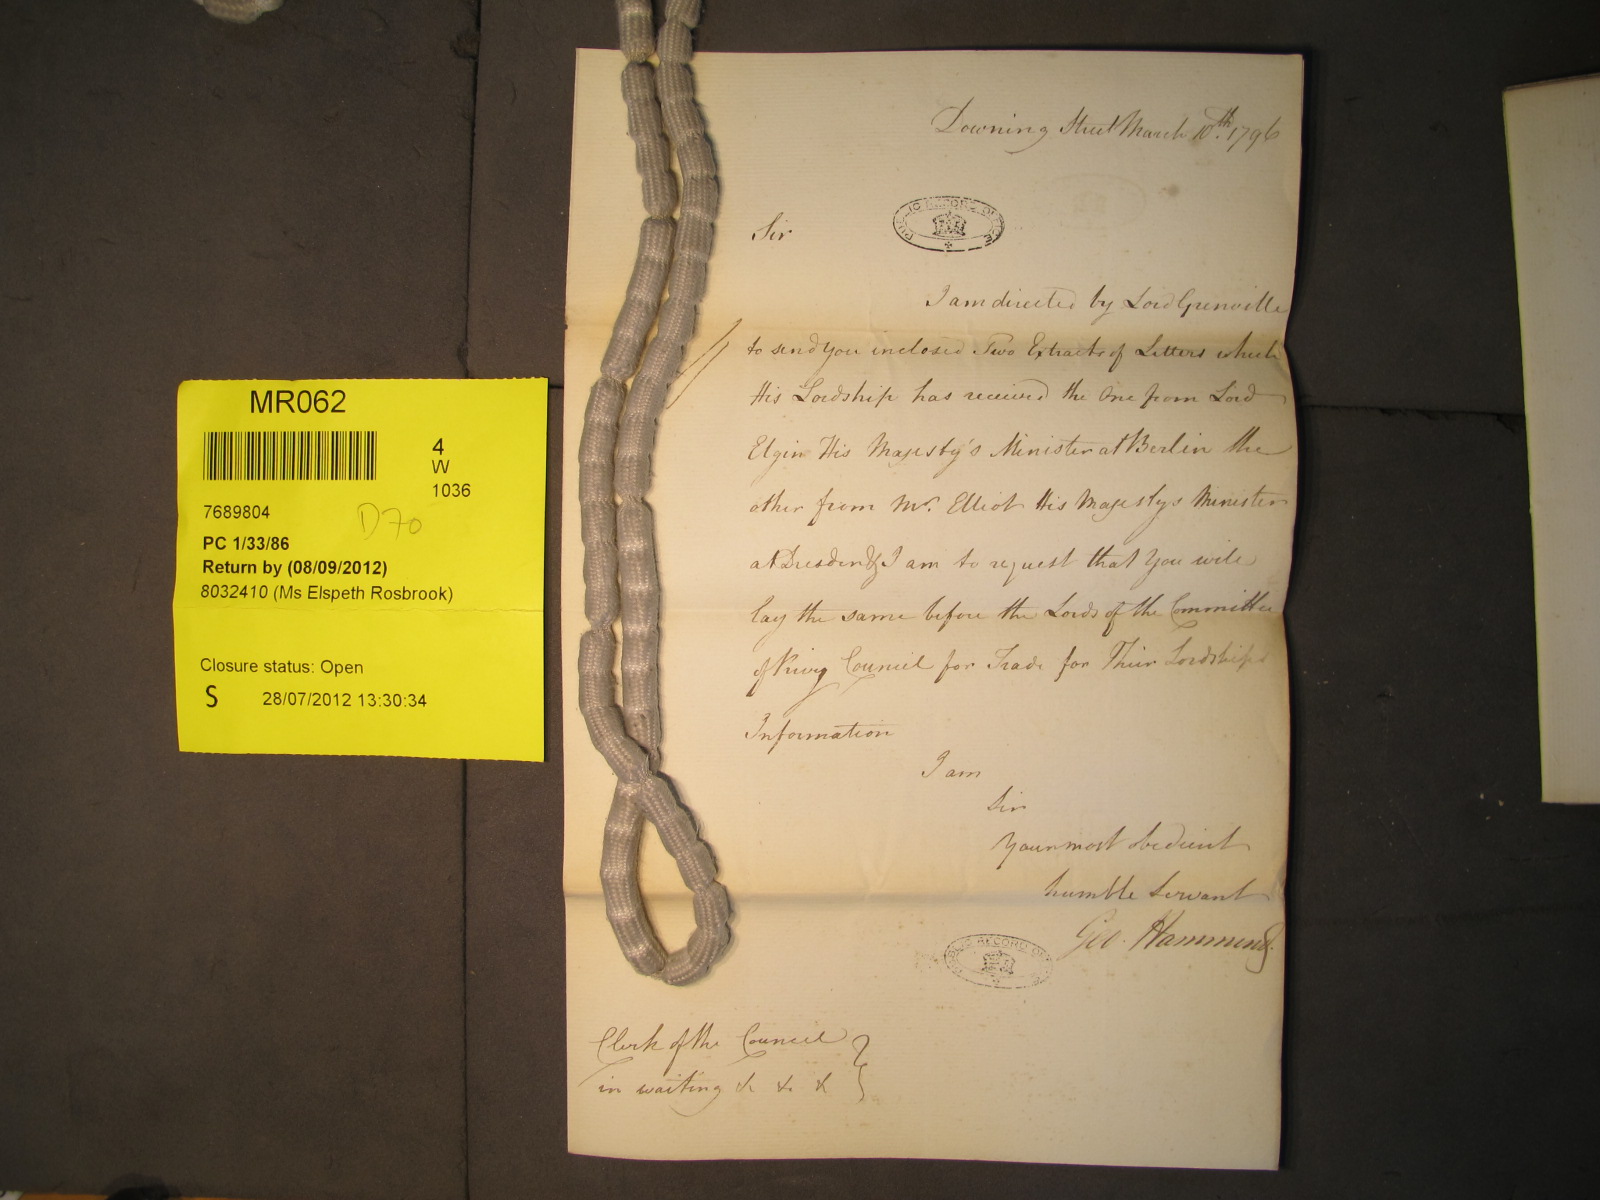 Downing Street March 10th. 1796
PUBLIC RECORD OFFICE
Sir
I am directed by Lord Grenville
to send you inclosed Two Extracts of Letters which
His Lordship has received the One from Lord
Elgin His Majesty's Minister at Berlin the
other from Mr. Elliot His Majestys Minister
at Dresden & I am to request that you will
lay the same before the Lords of the Committee
of Privy Council for Trade for Their Lordships
Information
I am
Sir
Your most obedient
humble Servant
Geo. Hammond.
PUBLIC RECORD OFFICE
Clerk of the Council
in waiting & & &
MR062
4
W
1036
7689804
D70
PC 1/33/86
Return by (08/09/2012)
8032410 (Ms Elspeth Rosbrook)
Closure status: Open
S 28/07/2012 13:30:34